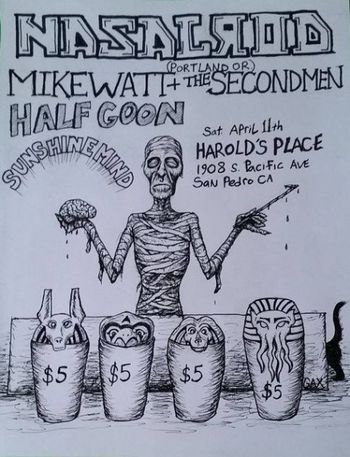 NASALROD
(PORTLAND OR)
MIKE WATT + THE SECONDMEN
HALF GOON
SUNSHINE MIND
Sat April 11th
HAROLD'S PLACE
1908 S. Pacific AVE
San Pedro CA
$5
$5
$5
$5